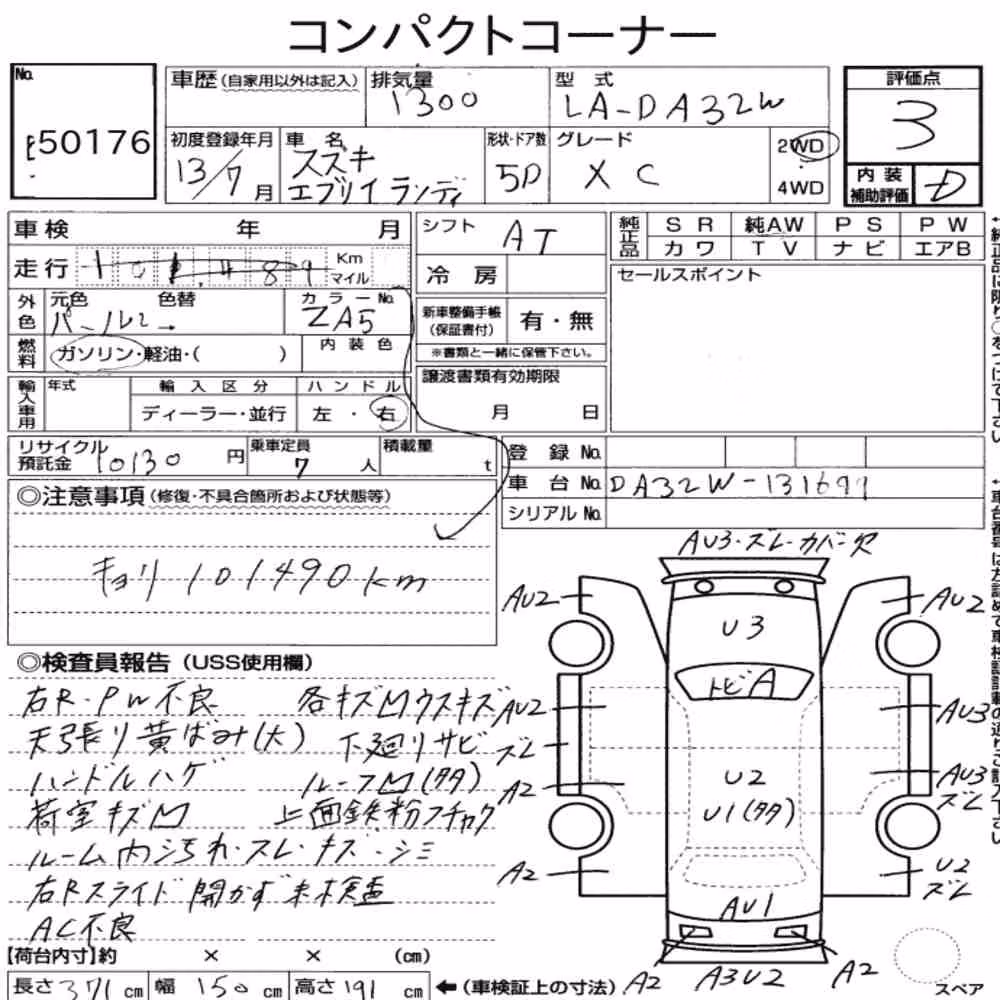 コンパクトコーナー
No. 50176
車歴 (自家用以外は記入) 排気量 1300 型式 LA-DA32W 評価点 3
初度登録年月 13/7月 車名 スズキ エブリイランディ 形状・ドア数 5D グレード XC 2WD 4WD
内装補助評価 D
車検 年 月 シフト AT 純正品 SR 純AW PS PW
カワ TV ナビ エアB
走行 Km マイル 冷房 セールスポイント
外色 元色 パール2→ 色替 カラーNo. ZA5 新車整備手帳 (保証書付) 有・無
燃料 ガソリン・軽油・( ) 内装色 ※書類と一緒に保管下さい。
輸入車用 年式 輸入区分 ハンドル 譲渡書類有効期限
ディーラー・並行 左・右 月 日
リサイクル預託金 10130円 乗車定員 7人 積載量 t 登録No.
車台No. DA32W-131697
シリアルNo.
◎注意事項 (修復・不具合箇所および状態等)
キョリ 101490km
◎検査員報告 (USS使用欄)
右R・PW不良 各キズM ウスキズ
天張り黄ばみ(大) 下廻りサビ
ハンドルハゲ ルーフM(多)
荷室キズM 上面鉄粉フチャク
ルーム内汚れ・スレ・キズ・シミ
右Rスライド開かず 未検査
AC不良
【荷台内寸】約 × × (cm)
長さ371cm 幅150cm 高さ191cm ←(車検証上の寸法)
AU3・ズレ・カバー欠
AU2 AU2
U3
トビA
AU2 ズレ AU3
A2 U2 AU3 ズレ
U1(多)
A2 U2 ズレ
AU1
A2 A3U2 A2
スペア